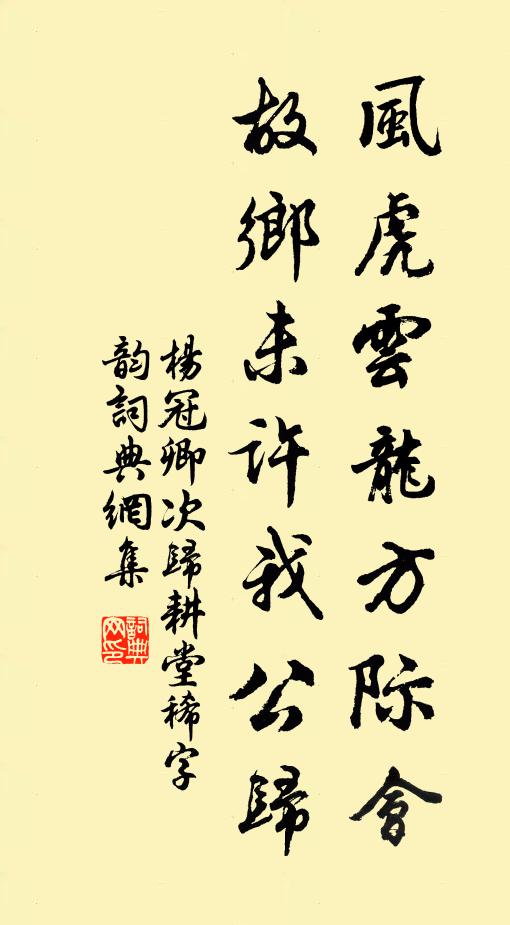 風虎雲龍方际會
故鄉未許我公歸
楊冠卿次歸耕堂稀字
韵詞典網集
詞典网印